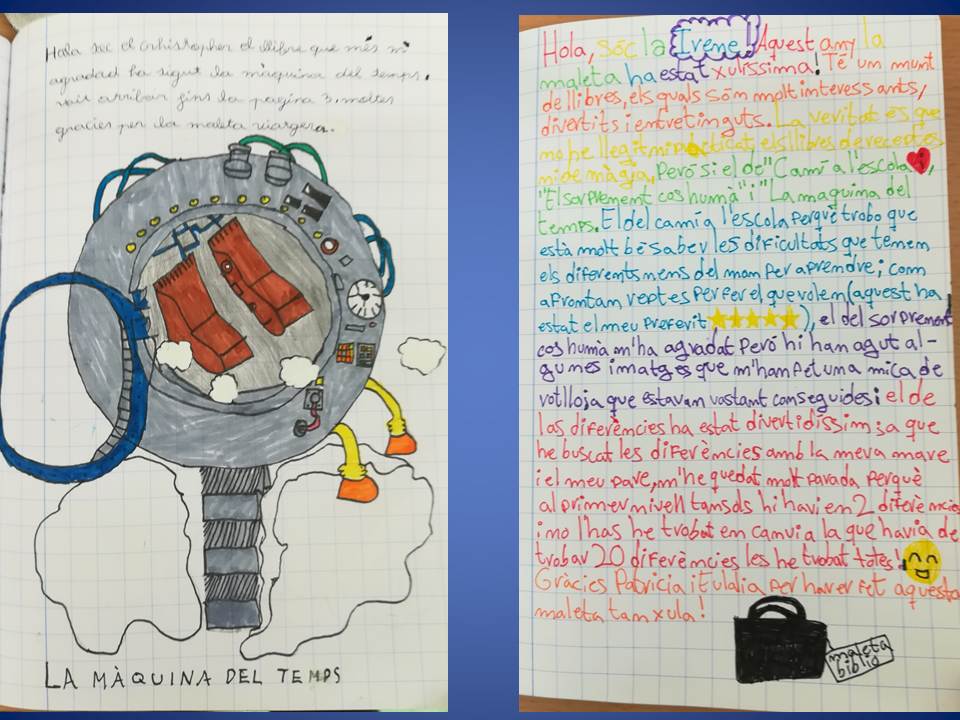 Hola soc el crhistopher el llibre que més m'
agradad ha sigut la màquina del temps.
vair arribar fins la pagina 3. moltes
gracies per la maleta viatgera.
LA MÀQUINA DEL TEMPS
Hola, sóc la Irene! Aquest any la
maleta ha estat xulíssima! Té un munt
de llibres, els quals sóm molt interessants,
divertits i entretinguts. La veritat és que
no he llegit ni practicat els llibres de receptes
ni de màgia, Però si el de "Camí a l'escola,
"El sorprement cos humà" i "La maquina del
temps. El del camí a l'escola perquè trobo que
està molt bé saber les dificultats que temem
els diferents nens del mam per aprendre; com
afrontam, reptes per fer el que volem (aquest ha
estat el meu preferit ★★★★★), el del sorprement
cos humà m'ha agradat però hi han agut al-
gunes imatges que m'han fet una mica de
votlloja que estavan vastant conseguides; i el de
las diferències ha estat divertidíssim ja que
he buscat les diferències amb la meva mare
i el meu pare, m'he quedat molt parada perquè
al primer nivell tamsols hi havien 2 diferències
i no l'has he trobat en camvia la que havia de
trobar 20 diferències les he trobat totes!
Gràcies Patricia i Eulalia per haver fet aquesta
maleta tam xula!
maleta
biblio